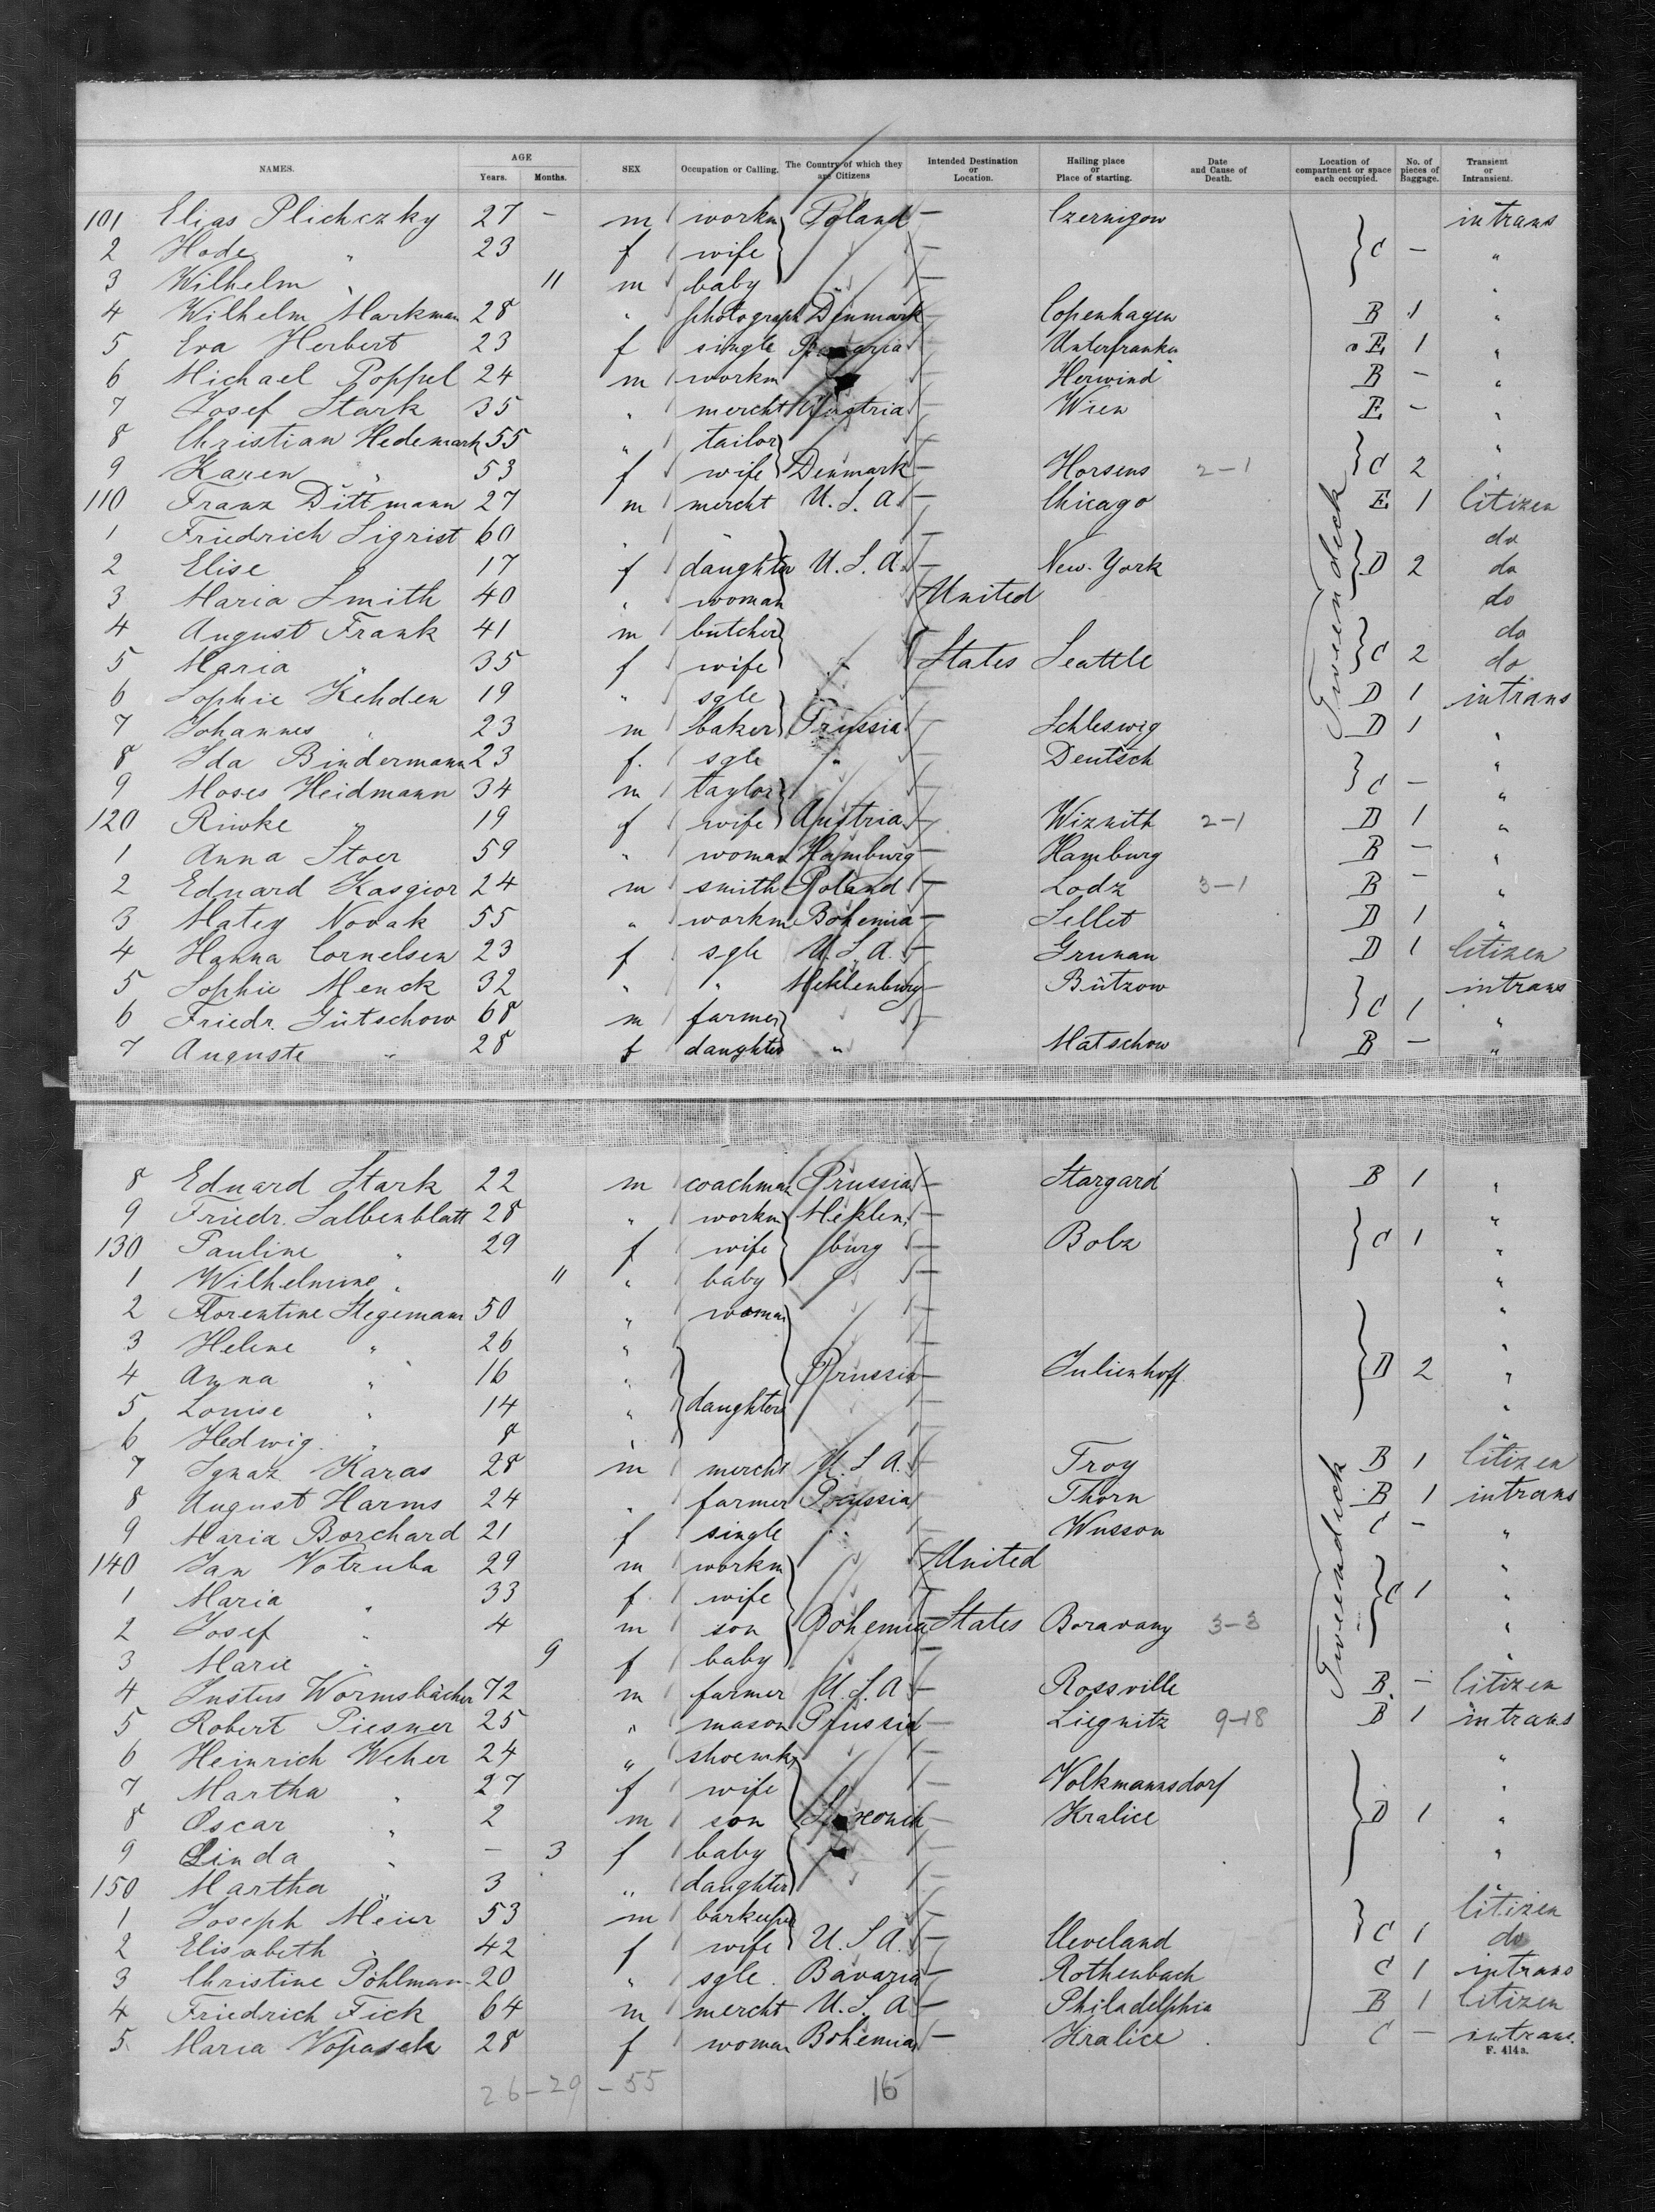 NAMES. AGE Years. Months. SEX Occupation or Calling. The Country of which they are Citizens Intended Destination or Location. Hailing place or Place of starting. Date and Cause of Death. Location of compartment or space each occupied. No. of pieces of Baggage. Transient or Intransient.
101 Elias Plichczky 27 - m workm Poland - Czernigow intrans
2 Hode " 23 f wife - C - "
3 Wilhelm " 11 m baby " - "
4 Wilhelm Markman 28 " photograph Denmark - Copenhagen B 1 "
5 Eva Herbert 23 f single - Unterfranken E 1 "
6 Michael Poppel 24 m workm - Herwind B - "
7 Josef Stark 35 " mercht Austria - Wien E - "
8 Christian Hedemark 55 " tailor - "
9 Karen " 53 f wife Denmark - Horsens 2-1 C 2 "
110 Franz Dittmann 27 m mercht U.S.A. - Chicago E 1 Citizen
1 Friedrich Sigrist 60 " - do
2 Elise " 17 f daughter U.S.A. - New-York D 2 do
3 Maria Smith 40 " woman United do
4 August Frank 41 m butcher do
5 Maria " 35 f wife " States Seattle C 2 do
6 Sophie Kehden 19 " sgle - D 1 intrans
7 Johannes " 23 m baker Prussia - Schleswig D 1 "
8 Ida Bindermann 23 f. sgle " - Deutsch "
9 Moses Heidmann 34 m taylor - C - "
120 Riwke " 19 f wife Austria - Wiznith 2-1 D 1 "
1 Anna Stoer 59 " woman Hamburg - Hamburg B - "
2 Eduard Kasgior 24 m smith Poland - Lodz 3-1 B - "
3 Matey Novak 55 " workm Bohemia - Sellet D 1 "
4 Hanna Cornelsen 23 f sgle U.S.A. - Grunau D 1 Citizen
5 Sophie Menck 32 " " Meklenburg - Bützow intrans
6 Friedr. Gütschow 68 m farmer - C 1 "
7 Auguste " 28 f daughter " Matschow B - "
Tweendeck
8 Eduard Stark 22 m coachman Prussia - Stargard B 1 "
9 Friedr. Salbenblatt 28 " workm Meklen, - "
130 Pauline " 29 f wife burg - Bolz C 1 "
1 Wilhelmine " 11 " baby - "
2 Florentine Stegemann 50 " woman - "
3 Helene " 26 " - "
4 Anna " 16 " Prussia - Julienhoff D 2 "
5 Louise " 14 " daughters - "
6 Hedwig " 8 " - "
7 Ignaz Karas 28 m mercht U.S.A. - Troy B 1 Citizen
8 August Harms 24 " farmer Prussia - Thorn B 1 intrans
9 Maria Borchard 21 f single " - Wusson C - "
140 Jan Votruba 29 m workm United "
1 Maria " 33 f. wife - C 1 "
2 Josef " 4 m son Bohemia States Boravany 3-3 "
3 Marie " 9 f baby - "
4 Justus Wormsbächer 72 m farmer U.S.A. - Rossville B - Citizen
5 Robert Piesner 25 " mason Prussia - Liegnitz 9-18 B 1 intrans
6 Heinrich Weher 24 " shoemk - "
7 Martha " 27 f wife - Volkmannsdorf "
8 Oscar " 2 m son - Kralice D 1 "
9 Linda " - 3 f baby - "
150 Martha " 3 " daughter - "
1 Joseph Meier 53 m barkeeper - Citizen
2 Elisabeth " 42 f wife U.S.A. - Cleveland C 1 do
3 Christine Pöhlman 20 " sgle. Bavaria - Rothenbach C 1 intrans
4 Friedrich Fick 64 m mercht U.S.A. - Philadelphia B 1 Citizen
5 Maria Vopasek 28 f woman Bohemia - Kralice C - intrans.
Tweendeck
F. 414a.
26-29-55 16